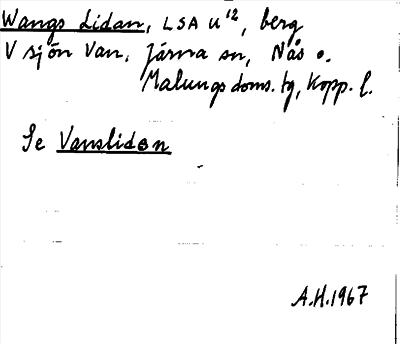 Wangs Lidan, LSA U 12, berg
V sjön Van, Järna sn, Nås o.
Malungs doms. tg, Kopp. l.
Se Vanslidan
A.H. 1967